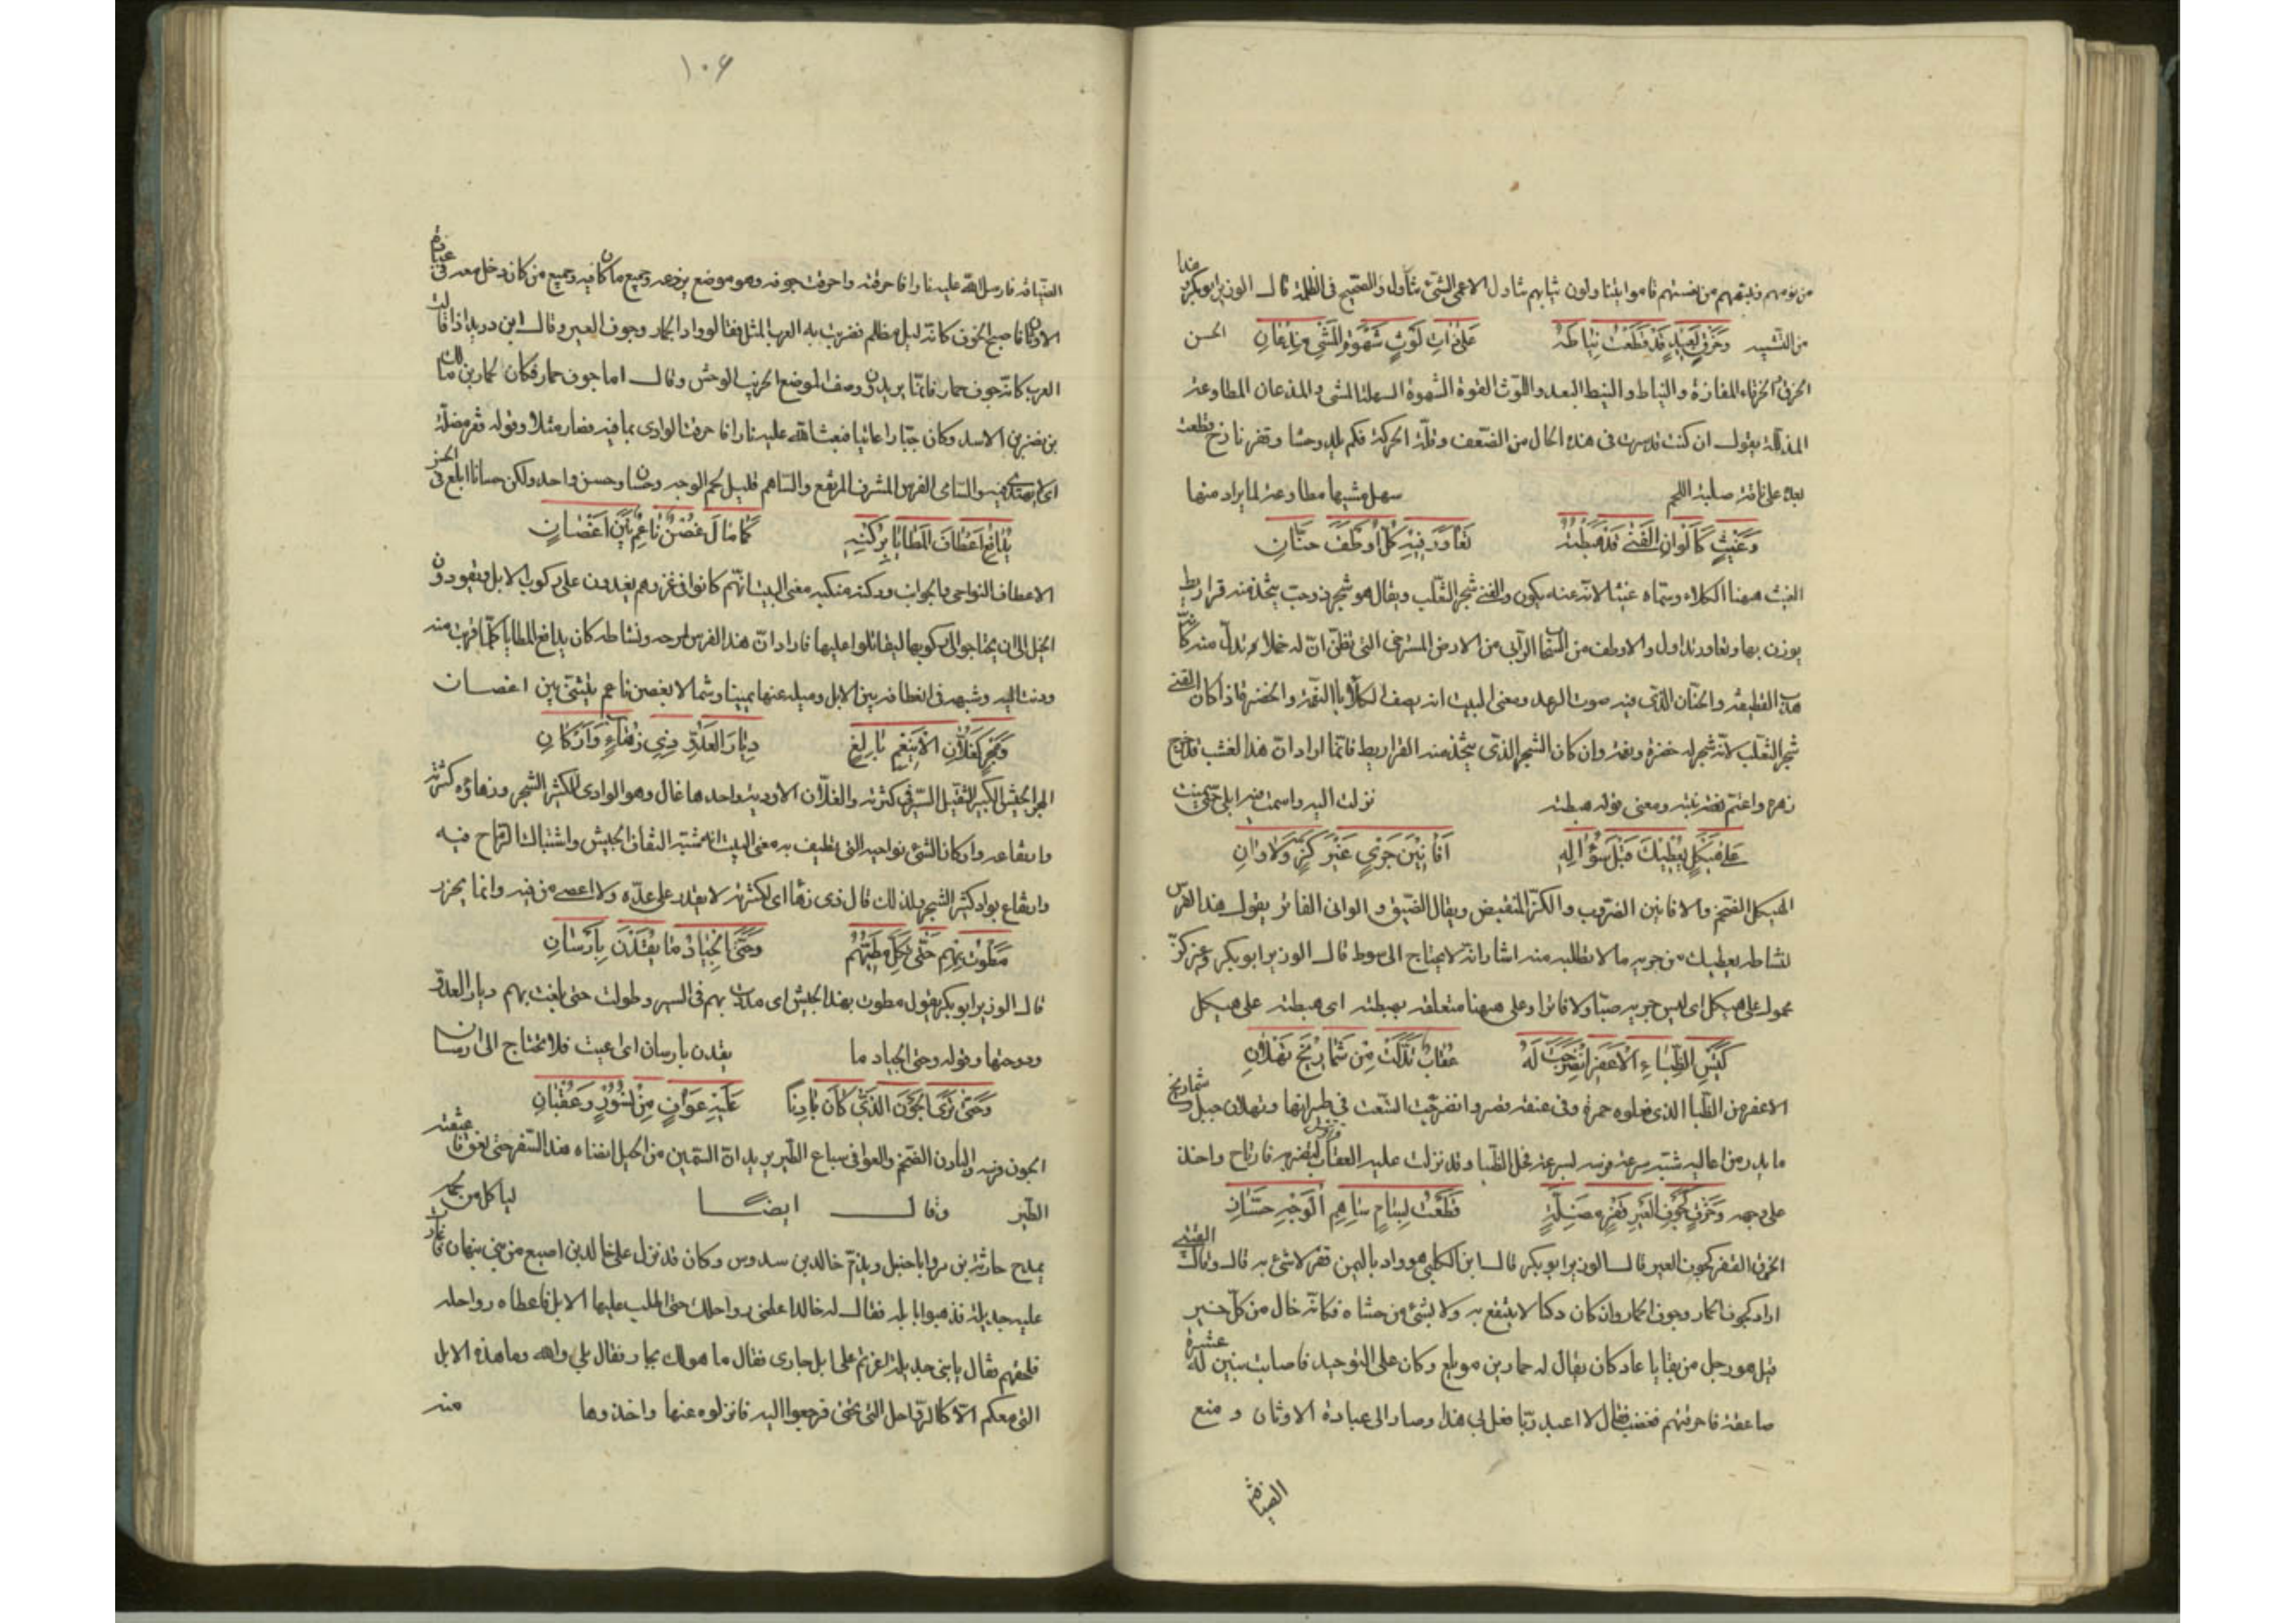 من نومهم ونبّههم من نعستهم قاموا يتناولون ثيابهم تناول الاعمى الشئ تناوله والصحيح فى الظلمة قال الوزير ابوبكر هذا
من التشبيه وَخَرْقٍ بَعِيدٍ قَدْ قَطَعْتُ نِيَاطَهُ عَلَى ذَاتِ لَوْثٍ سَهْوَةِ المَشْيِ مِذْعَانِ الحسن
الخرق الخرقاء المفازة والنياط والنيط البعد واللوث القوة السهوة السهلة المشى والمذعان المطاوعة
المذللة يقول ان كنت قد صرت فى هذه الحال من الضعف وقلّة الحركة فكم بلد وحشا وقفر نازح قطعت
بعده على ناقة صلبة اللحم سهل مشيها مطاوعة لما يراد منها
وَغَيْثٍ كَأَلْوَانِ الفَنَى قَدْ هَبَطْتُهُ تَعَاوَرَ فِيهِ كُلُّ أَوْطَفَ حَنَّانِ
الغيث ههنا الكلاء وسمّاه غيثا لانه عنه يكون والفنى شجر الثعلب ويقال هو شجر ذو حب يتخذ منه قراريط
يوزن بها وتعاور تداول والاوطف من السحاب الدانى من الارض المسترخى التى تظن ان له خملا تدلى منه
هدب القطيفة والحنّان الذى فيه صوت الرعد ومعنى البيت انه يصف الكلأ بالنعمة والخضرة فاذا كان الفنى
شجر الثعلب لانه شجر له خضرة ونعمة وان كان الشجر الذى يتخذ منه القراريط فانما اراد ان هذا العشب قد اخرج
زهره واعتم نضرته ومعنى قوله هبطته نزلت اليه واسمت فيه ابلى حتى سمنت
عَلَى هَيْكَلٍ يُعْطِيكَ قَبْلَ سُؤَالِهِ أَفَانِينَ جَرْيٍ غَيْرَ كَزٍّ وَلَا وَانِ
الهيكل الضخم والافانين الضروب والكزّ المنقبض ويقال الضيق والوانى الفاتر يقول هذا الفرس
لنشاطه يعطيك من جريه ما لا تطلبه منه اشارة انه لا يحتاج الى سوط قال الوزير ابوبكر وغير كزّ
محمول على هيكل اى ليس جريه ضيقا ولا فاترا وعلى ههنا متعلقة بهبطته اى هبطته على هيكل
كَتَيْسِ الظِّبَاءِ الأَعْفَرِ انْضَرَجَتْ لَهُ عُقَابٌ تَدَلَّتْ مِنْ شَمَارِيخِ ثَهْلَانِ
الاعفر من الظبا الذى تعلوه حمرة وفى عنقه قصر وانضرجت اتسعت فى طيرانها وثهلان جبل وشماريخ
ما بدر من اعاليه شبّه سرعة فرسه بسرعة فحل الظبا وقد نزلت عليه العقاب لتضربه فارتاح واخذ
على وجهه وَخَرْقٍ كَجَوْفِ العَيْرِ قَفْرٍ مَضِلَّةٍ قَطَعْتُ بِسَامٍ سَاهِمِ الوَجْهِ حُسَّانِ
الخرق القفر كجوف العير قال الوزير ابوبكر قال ابن الكلبى هو واد باليمن قفر لا شئ به قال وقال القتبى
اراد كجوف الحمار وجوف الحمار وان كان ذكيا لا ينتفع به ولا بشئ من حشاه فكانه خال من كل خير
قيل هو رجل من بقايا عاد كان يقال له حمار بن مويلع وكان على التوحيد فاصابت بنين له عشرة
صاعقة فاحرقتهم فغضب فقال لا اعبد ربّا فعل بى هذا وصار الى عبادة الاوثان ومنع
الضيافة
١٠٦
الضيافة فارسل الله عليه نارا فاحرقته واحرقت جوفه وهو موضع يزرعه وجميع ما كان فيه وجميع من كان دخل معه فى عبادة
الاوثان فاصبح الجوف كانه ليل مظلم فضربت به العرب المثل فقالوا واد الحمار وجوف العير وقال ابن دريد اذا قالت
العرب كانه جوف حمار فانما يريدون وصف الموضع الخرب الوحش وقال اما جوف حمار فكان لحمار بن مالك
بن نصر بن الاسد وكان جبّارا عاتيا فبعث الله عليه نارا فاحرقت الوادى بما فيه فصار مثلا وقوله قفر مضلّة
اى لا يهتدى فيه والسامى الفرس المشرف المرتفع والساهم قليل لحم الوجه وحسان وحسن واحد ولكن حسانا ابلغ فى الحسن
يُدَافِعُ أَعْطَافَ المَطَايَا بِرُكْنِهِ كَمَا مَالَ غُصْنٌ نَاعِمٌ بَيْنَ أَغْصَانِ
الاعطاف النواحى والجوانب وركنه منكبه معنى البيت انهم كانوا فى غزوهم يغدون على ركوب الابل ويقودون
الخيل الى ان يحتاجوا الى ركوبها ليقاتلوا عليها فاراد ان هذا الفرس لمرحه ونشاطه كان يدافع المطايا كلّما قربت منه
ودنت اليه وشبهه فى انعطافه بين الابل وميله عنها يمينا وشمالا بغصن ناعم يتثنى بين اغصان
وَمَجْرٍ كَغُلَّانِ الأُنَيْعِمِ بَالِغٍ دِيَارَ العَدُوِّ ذِي زُهَاءٍ وَأَرْكَانِ
المجر الجيش الكبير الثقيل السير فى كثرته والغلّان الاودية واحدها غال وهو الوادى الكثير الشجر وزهاؤه كثرته
وارتفاعه واركان الشئ نواحيه التى تطيف به معنى البيت انه شبّه التفاف الجيش واشتباك الرماح فيه
وارتفاع بواد كثير الشجر ولذلك قال ذى زها اى لكثرته لا يقدر على عدّه ولا احصى من فيه وانما يحزر
مَطَوْتُ بِهِمْ حَتَّى تَكِلَّ مَطِيُّهُمْ وَحَتَّى الجِيَادُ مَا يُقَدْنَ بِأَرْسَانِ
قال الوزير ابوبكر يقول مطوت بهذا الجيش اى مددت بهم فى السير وطولت حتى بلغت بهم ديار العدوّ
ودوختها وقوله وحتى الجياد ما يقدن بارسان اى اعيت فلا تحتاج الى ارسان
وَحَتَّى تَرَى الجَوْنَ الَّذِي كَانَ بَادِنًا عَلَيْهِ عَوَافٍ مِنْ نُسُورٍ وَعِقْبَانِ
الجون فرسه والبادن الضخم والعوافى سباع الطير يريد ان السمين من الخيل افناه هذا السفر حتى نفق فاعتفته
الطير وقال ايضا لياكل من لحمه
يمدح حارثة بن مر وابا حنبل ويذمّ خالد بن سدوس وكان قد نزل على خالد بن اصمع من بنى نبهان فاغارت
عليه جديلة فذهبوا بابله فقال له خالد اعطنى رواحلك حتى اطلب عليها الابل فاعطاه رواحله
فلحقهم فقال يا بنى جديلة اغرتم على ابل جارى فقال ما هو لك بجار فقال بلى والله وما هذه الابل
التى معكم الا كالرواحل التى تحتى فرجعوا اليه فانزلوه عنها واخذوها منه